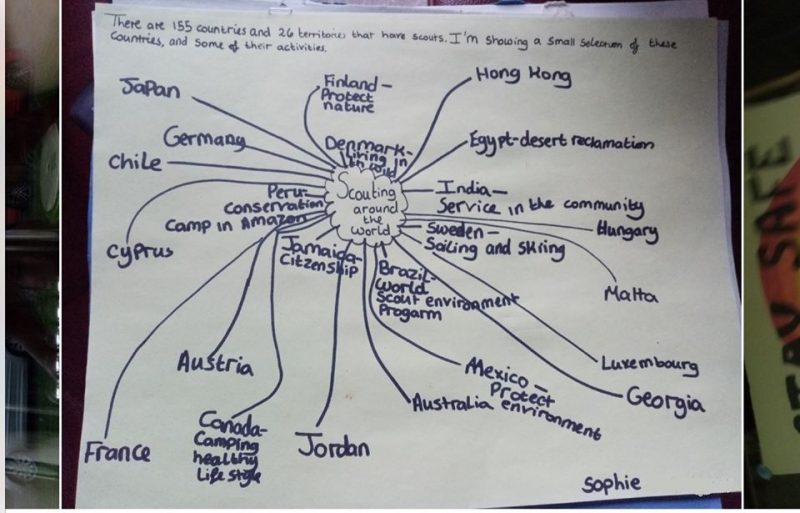 There are 155 countries and 26 territories that have scouts. I'm showing a small selection of these
countries, and some of their activities.
Japan
Finland-
Protect
nature
Hong Kong
Germany
Denmark-
living in
Egypt-desert reclamation
Chile
Scouting
around
the
world
Peru-
conservation
Camp in Amazon
India-
Service in the community
Hungary
Cyprus
Sweden-
Sailing and skiing
Jamaida-
Citzenship
Brazil-
World
Scout environment
Progarm
Malta
Austria
Luxembourg
Mexico-
Protect
environment
Georgia
Australia
Canada-
Camping
healthy
Life style
France
Jordan
Sophie
STAY SAFE